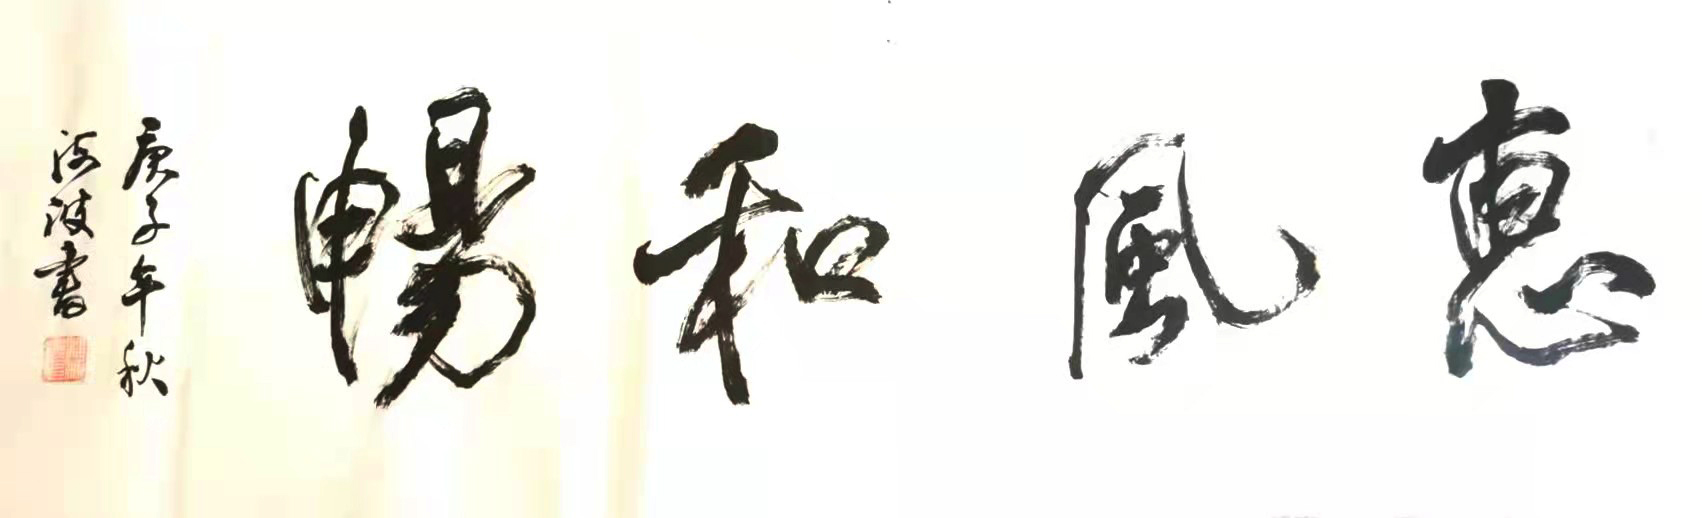 惠風和暢
庚子年秋
海波書